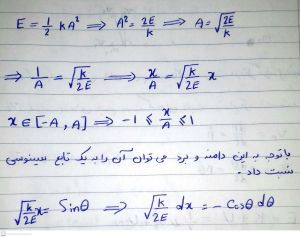 E = 1/2 kA² ⟹ A² = 2E/k ⟹ A = √(2E/k)
⟹ 1/A = √(k/2E) ⟹ x/A = √(k/2E) x
x ∈ [-A, A] ⟹ -1 ≤ x/A ≤ 1
باتوجه به این دامنه و برد می توان آن را به یک تابع سینوسی
نسبت داد.
√(k/2E) x = Sinθ ⟹ √(k/2E) dx = -Cosθ dθ